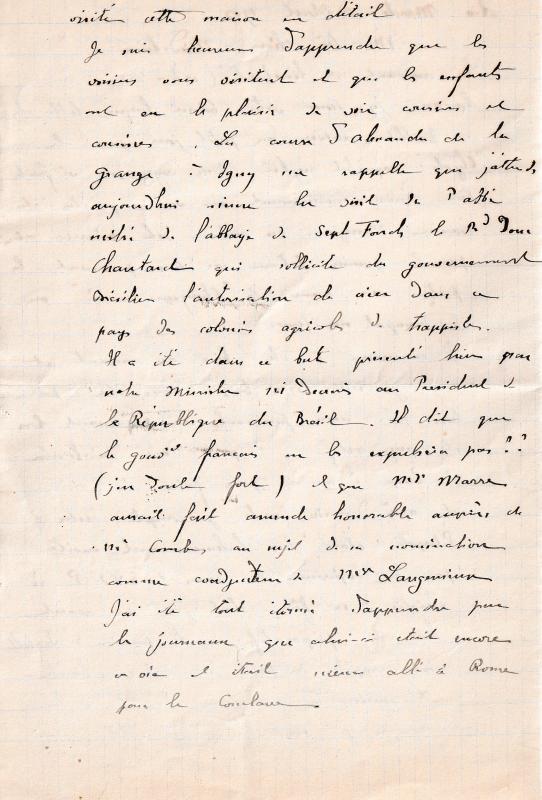 visité cette maison en détail
Je suis heureux d'apprendre que les
voisins vous visitent et que les enfants
ont eu le plaisir de voir cousines et
cousins. La course d'Alexandre de la
Grange à Igny me rappelle que j'attends
aujourdhui même la visite de l'abbé
mitré de l'abbaye de Sept Fonds le Rd Dom
Chautard qui sollicite du gouvernement
brésilien l'autorisation de créer dans ce
pays des colonies agricoles de trappistes.
Il a été dans ce but présenté hier par
notre Ministre Mr Decrais au Président de
la République du Brésil. Il dit que
le gouvt français ne les expulsera pas ??
(j'en doute fort) et que Mgr Marre
aurait fait amende honorable auprès de
Mr Combes au sujet de sa nomination
comme coadjuteur de Mgr Langénieux
J'ai été tout étonné d'apprendre par
les journaux que celui-ci était encore
en vie et était même allé à Rome
pour le Conclave